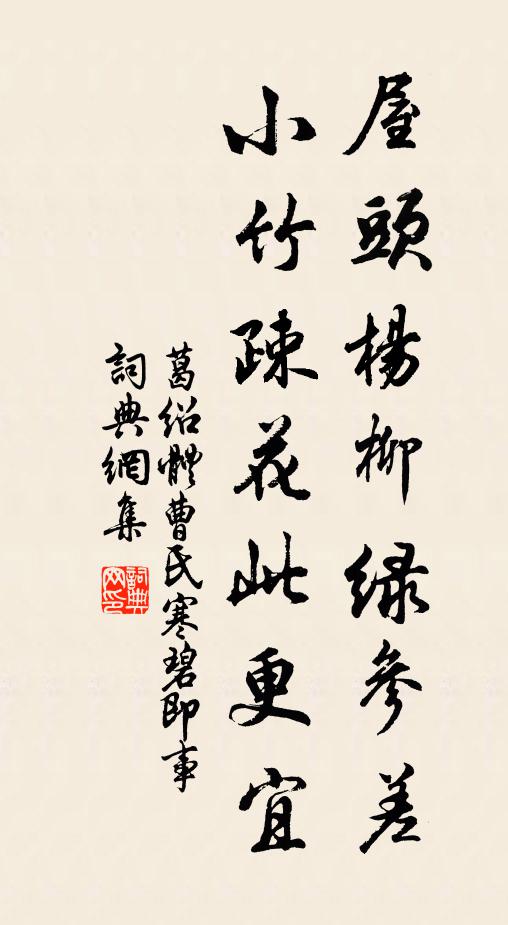 屋頭楊柳綠參差
小竹疎花此更宜
葛紹體曹民寒碧即事
詞典網集
詞典網印